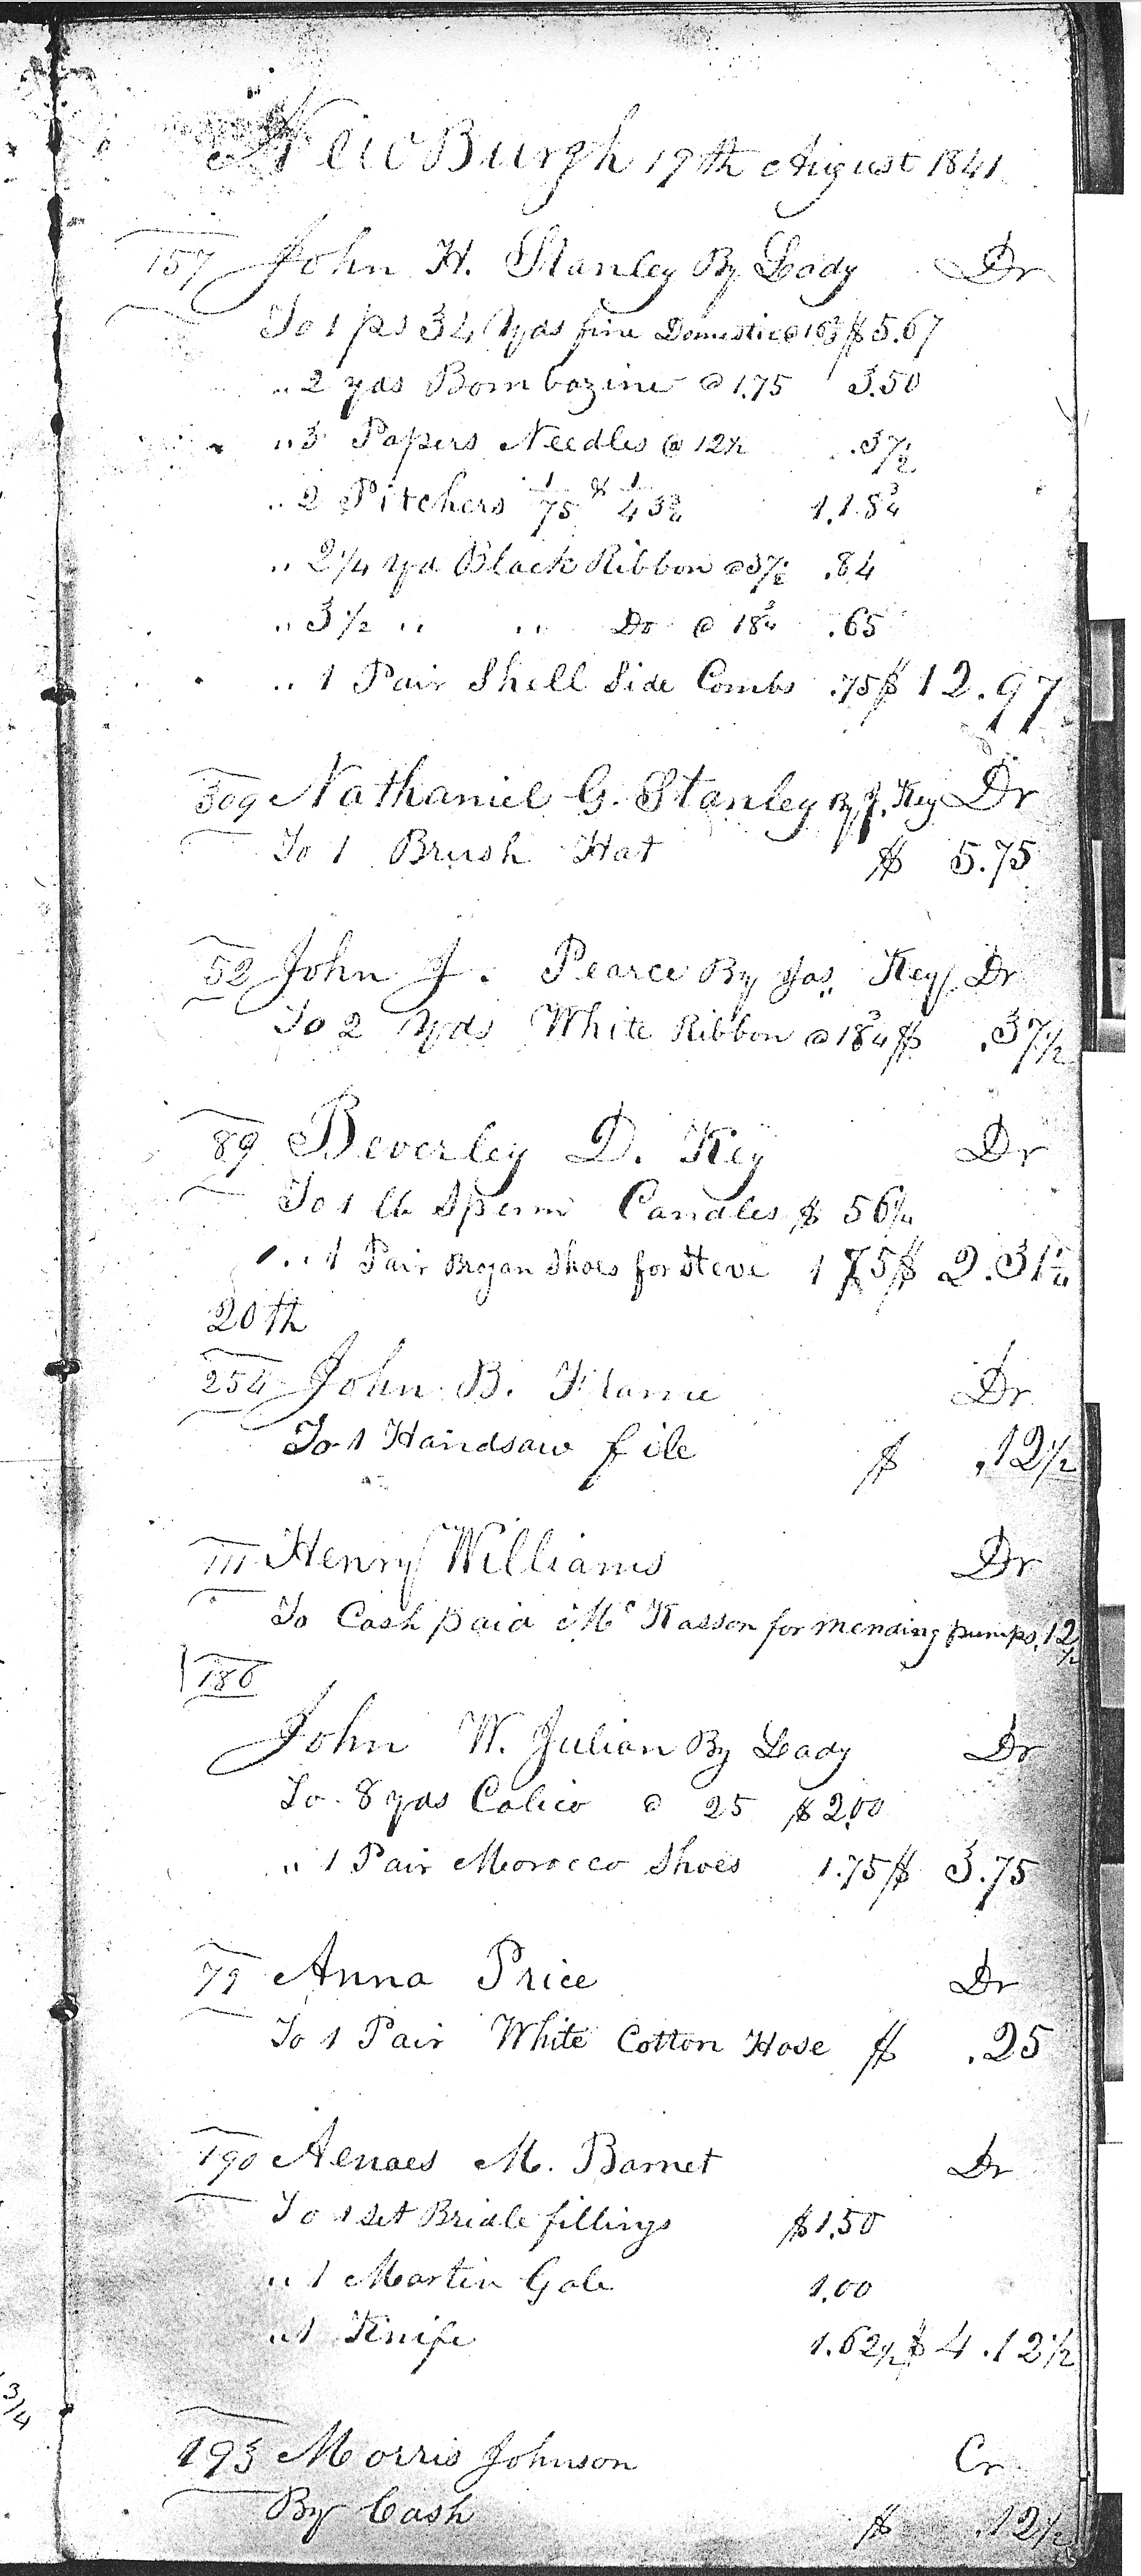 NewBurgh 19th August 1841
157 John H. Stanley By Lady Dr
To 1 ps 34 Yds fine Domestic @ 16⅔ $5.67
" 2 yds Bombazine @ 1.75 3.50
" 3 Papers Needles @ 12½ .37½
" 2 Pitchers 1/75 & 1/43¾ 1.18¾
" 2¼ Yd Black Ribbon @ 37½ .84
" 3½ " " Do @ 18¾ .65
" 1 Pair Shell Side Combs .75 $12.97
309 Nathaniel G. Stanley By J. Key Dr
To 1 Brush Hat $ 5.75
52 John J. Pearce By Jas. Key Dr
To 2 Yds White Ribbon @ 18¾ $ .37½
89 Beverley D. Key Dr
To 1 lb Sperm Candles $ 56¼
" 1 Pair Brogan Shoes for Steve 1 75 $ 2.31¼
20th
254 John B. Dr
To 1 Handsaw file $ .12½
111 Henry Williams Dr
To Cash paid Mc Kasson for mending pumps .12½
186
John W. Julian By Lady Dr
To 8 yds Calico @ 25 $2.00
" 1 Pair Morocco Shoes 1.75 $ 3.75
79 Anna Price Dr
To 1 Pair White Cotton Hose $ .25
190 Aenaes M. Barnet Dr
To 1 set Bridle fillings $1.50
" 1 Martin Gale 1.00
" 1 Knife 1.62½ $ 4.12½
193 Morris Johnson Cr
By Cash $ .12½
3/4